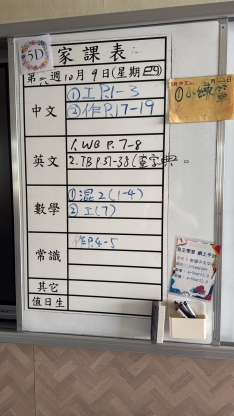 5D
家課表
第六週10月9日(星期四)
中文
①工P.1-3
②作P.17-19
英文
1. WB P.7-8
2. TB P.37-38 (查字典)。
數學
①混2(1-4)
②工(7)
常識
作P.4-5
其它
值日生
①小練筆
自主學習 網上學習